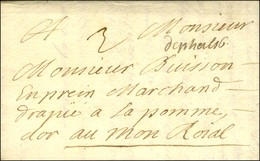 A Monsieur
2
dephalsb
Monsieur Buisson
Enprein Marchand
drapié a la pomme
dor au Mon Roial